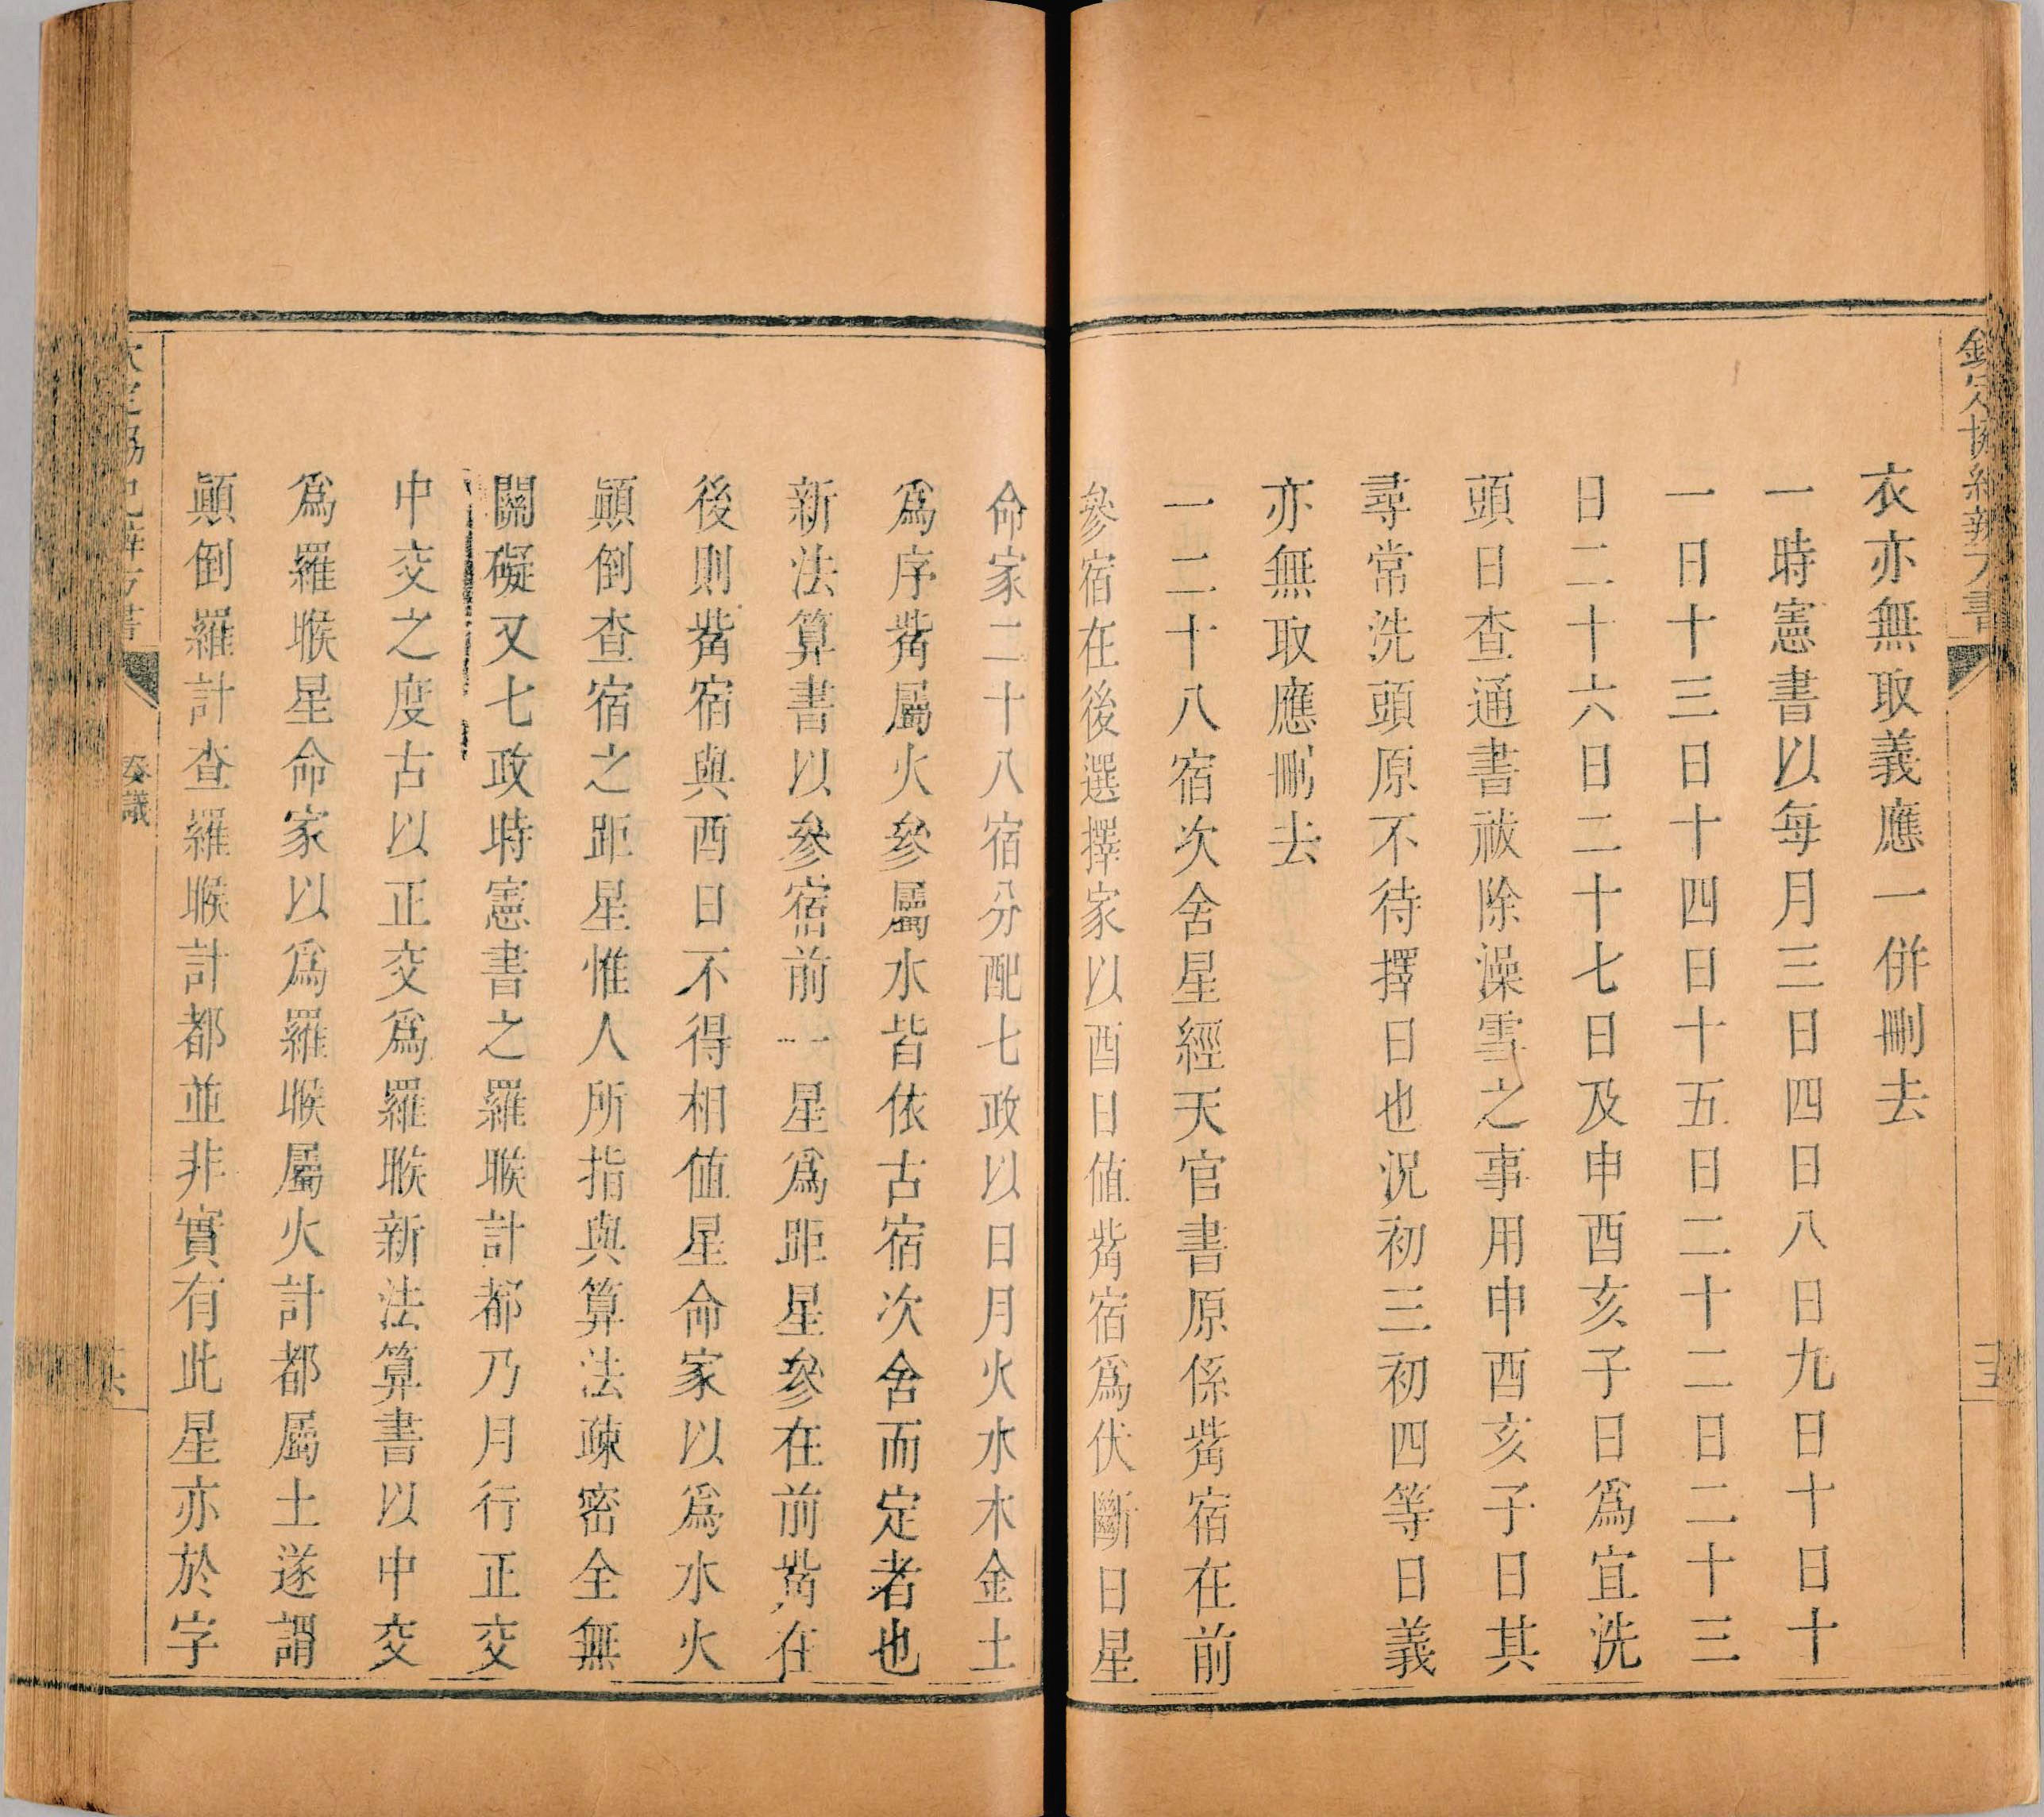 衣亦無取義應一併刪去
一時憲書以每月三日四日八日九日十日十
一日十三日十四日十五日二十二日二十三
日二十六日二十七日及申酉亥子日爲宜洗
頭日查通書祓除澡雪之事用申酉亥子日其
尋常洗頭原不待擇日也況初三初四等日義
亦無取應刪去
一二十八宿次舍星經天官書原係觜宿在前
參宿在後選擇家以酉日值觜宿爲伏斷日星
命家二十八宿分配七政以日月火水木金土
爲序觜屬火參屬水皆依古宿次舍而定者也
新法算書以參宿前一星爲距星參在前觜在
後則觜宿與酉日不得相值星命家以爲水火
顚倒查宿之距星惟人所指與算法疎密全無
關礙又七政時憲書之羅睺計都乃月行正交
中交之度古以正交爲羅睺新法算書以中交
爲羅睺星命家以爲羅睺屬火計都屬土遂謂
顚倒羅計查羅睺計都並非實有此星亦於字
奏議